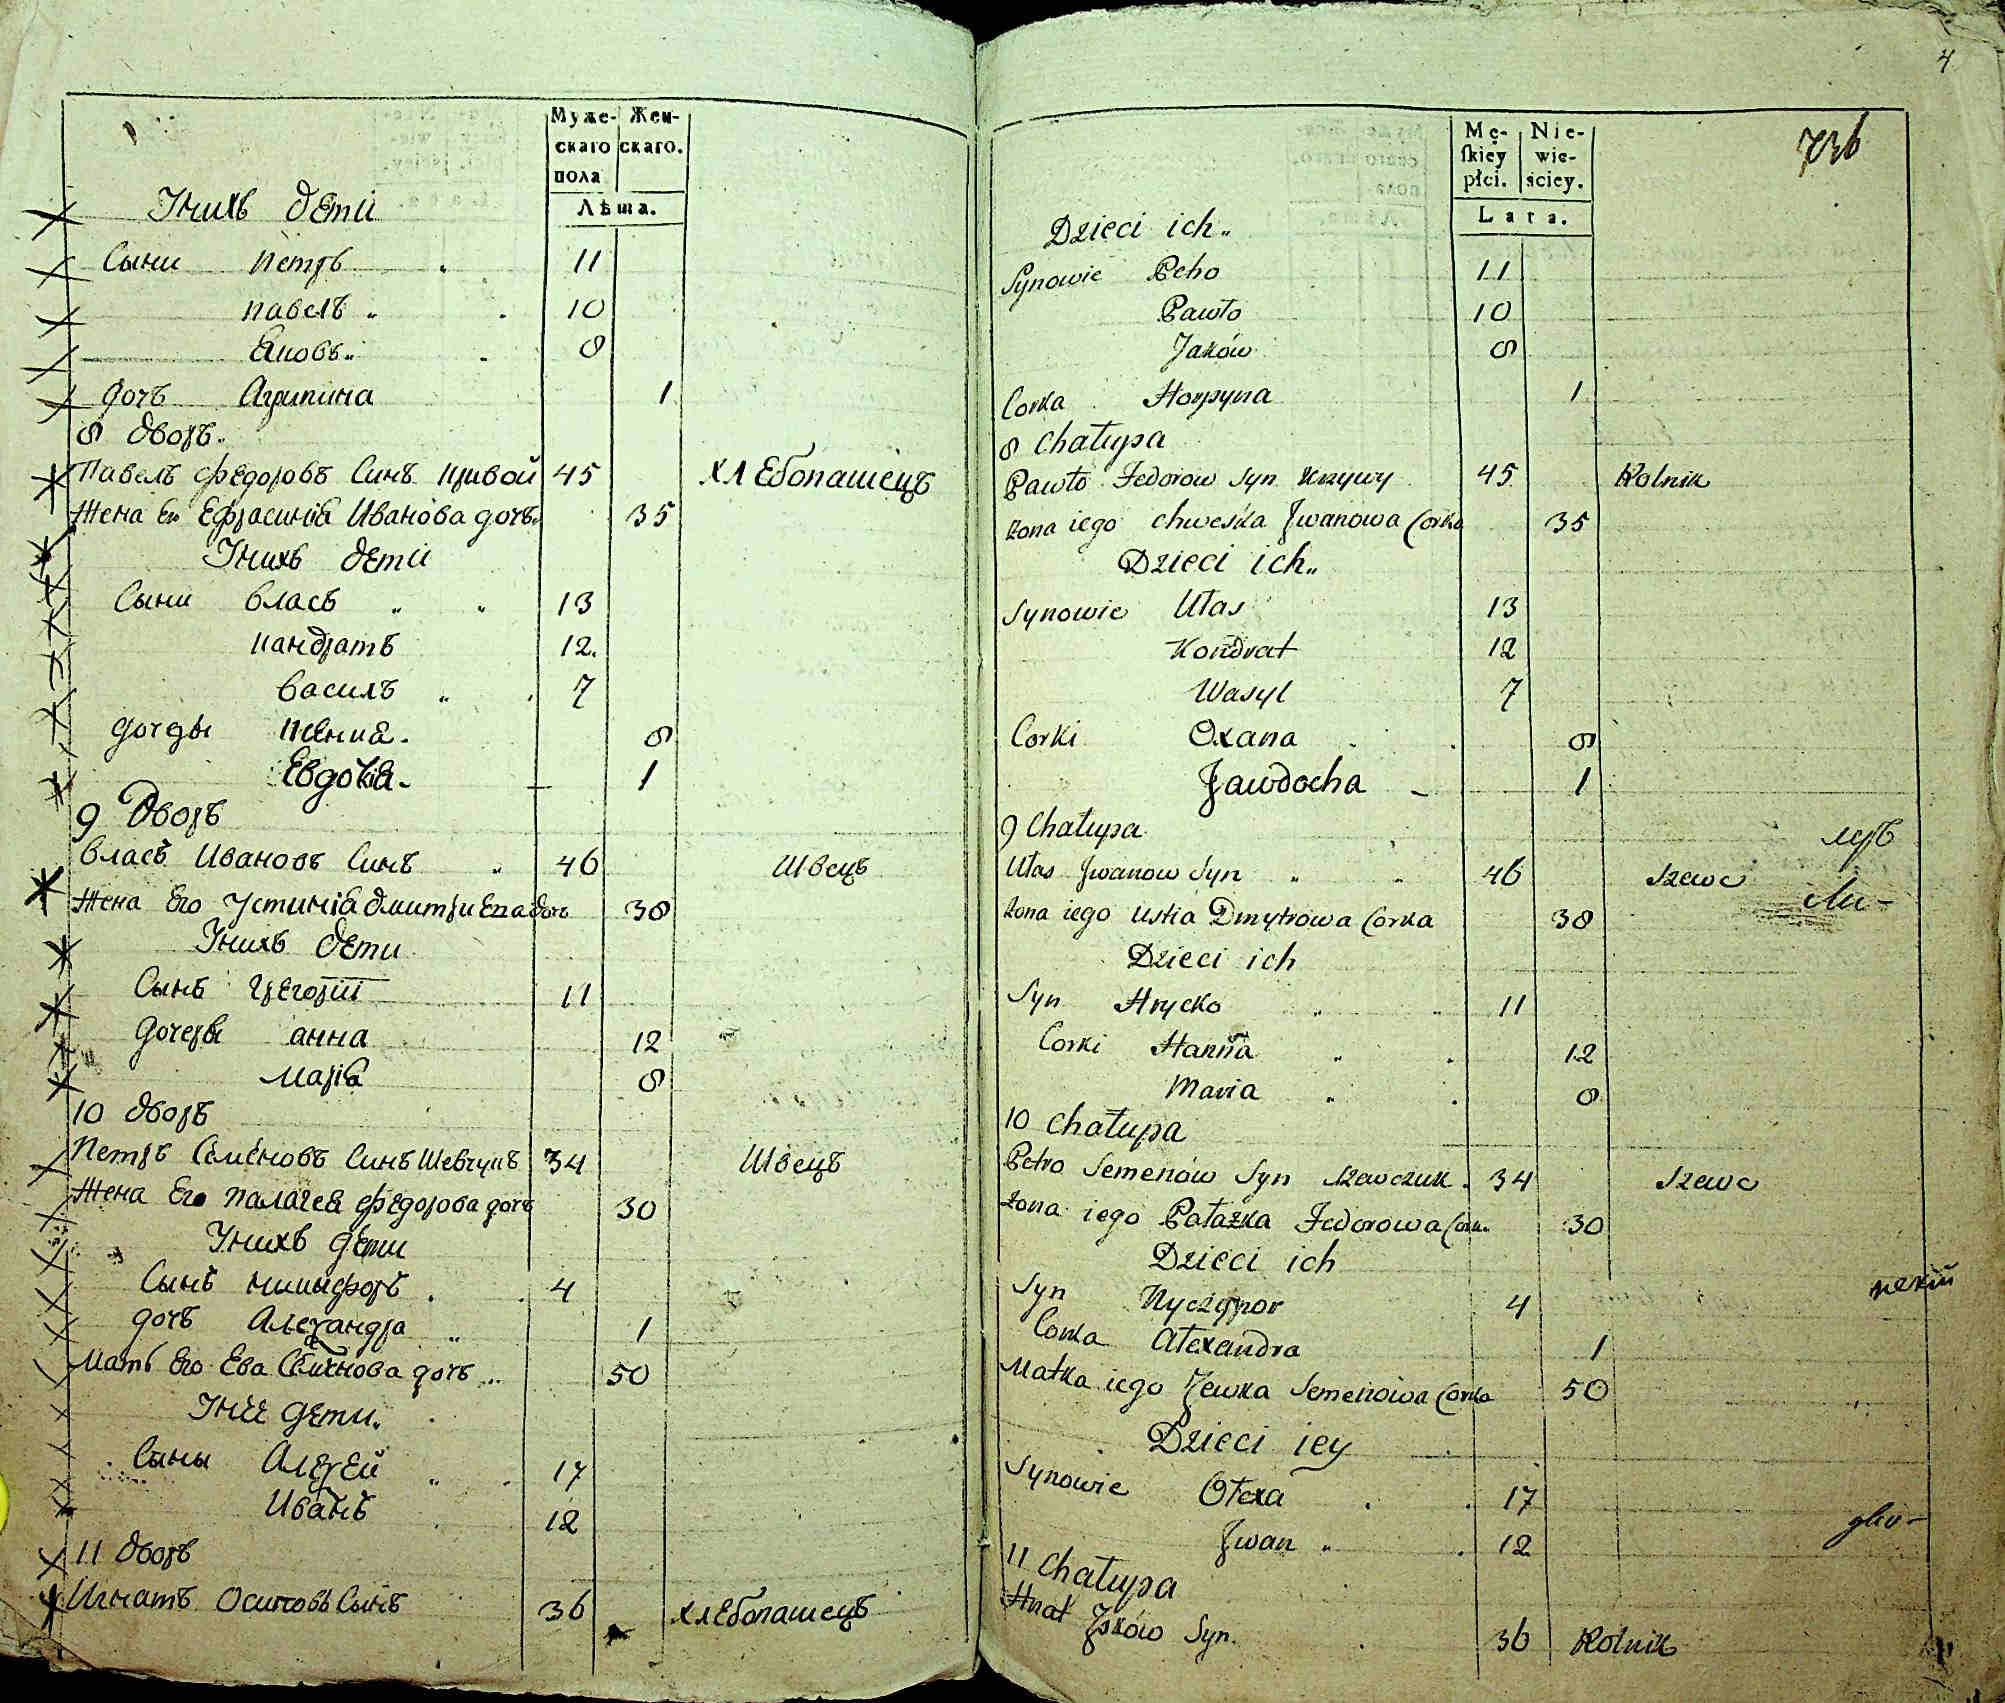 Муже- Жен-
скаго скаго.
пола
Лѣта.
Унихъ дети
Сыни Петръ 11
павелъ 10
Яковъ 8
дочь Агрипина 1
8 дворъ.
Павелъ Федоровъ Синъ кривой 45 хлебопашецъ
Жена Его Ефросинія Иванова дочь 35
Унихъ дети
Сыни Власъ 13
кандратъ 12.
Василъ 7
дочеры Ксения 8
Евдокія 1
9 Дворъ
Власъ Ивановъ Синъ 46 Швецъ
Жена Его Устинія дмитриева доч 38
Унихъ дети
Сынъ Григорій 11
дочеры анна 12
Марія 8
10 дворъ
Петръ Семеновъ Синъ Шевчукъ 34 Швецъ
Жена Его Палагея Федорова дочь 30
Унихъ дети
Сынъ никифоръ 4
дочь Алехандра 1
Мать Его Ева Семенова дочь 50
Унее дети
Сыны Алехей 17
Иванъ 12
11 дворъ
Игнатъ Осиповъ Сынъ 36 хлебопашецъ
4
736
Mę- Nie-
ſkiey wie-
płci. ściey.
Lata.
Dzieci ich
Synowie Petro 11
Pawło 10
Jaków 8
Corka Horpyna 1
8 Chałupa
Pawło Fedorow Syn Krzywy 45 Rolnik
żona iego Chweska Jwanowa Corka 35
Dzieci ich
Synowie Ułas 13
Kondrat 12
Wasyl 7
Corki Oxana 8
Jawdocha 1
9 Chałupa
Ułas Jwanow Syn 46 Szewc
żona iego Ustia Dmytrowa Corka 38
Dzieci ich
Syn Hrycko 11
Corki Hanna 12
Maria 8
10 Chałupa
Petro Semenów Syn Szewczuk 34 Szewc
żona iego Pałażka Fedorowa Cor. 30
Dzieci ich
Syn Nyczypor 4
Corka Alexandra 1
Matka iego Jewka Semenowa Corka 50
Dzieci iey
Synowie Ołexa 17
Jwan 12
11 Chałupa
Hnat Jsków Syn 36 Rolnik